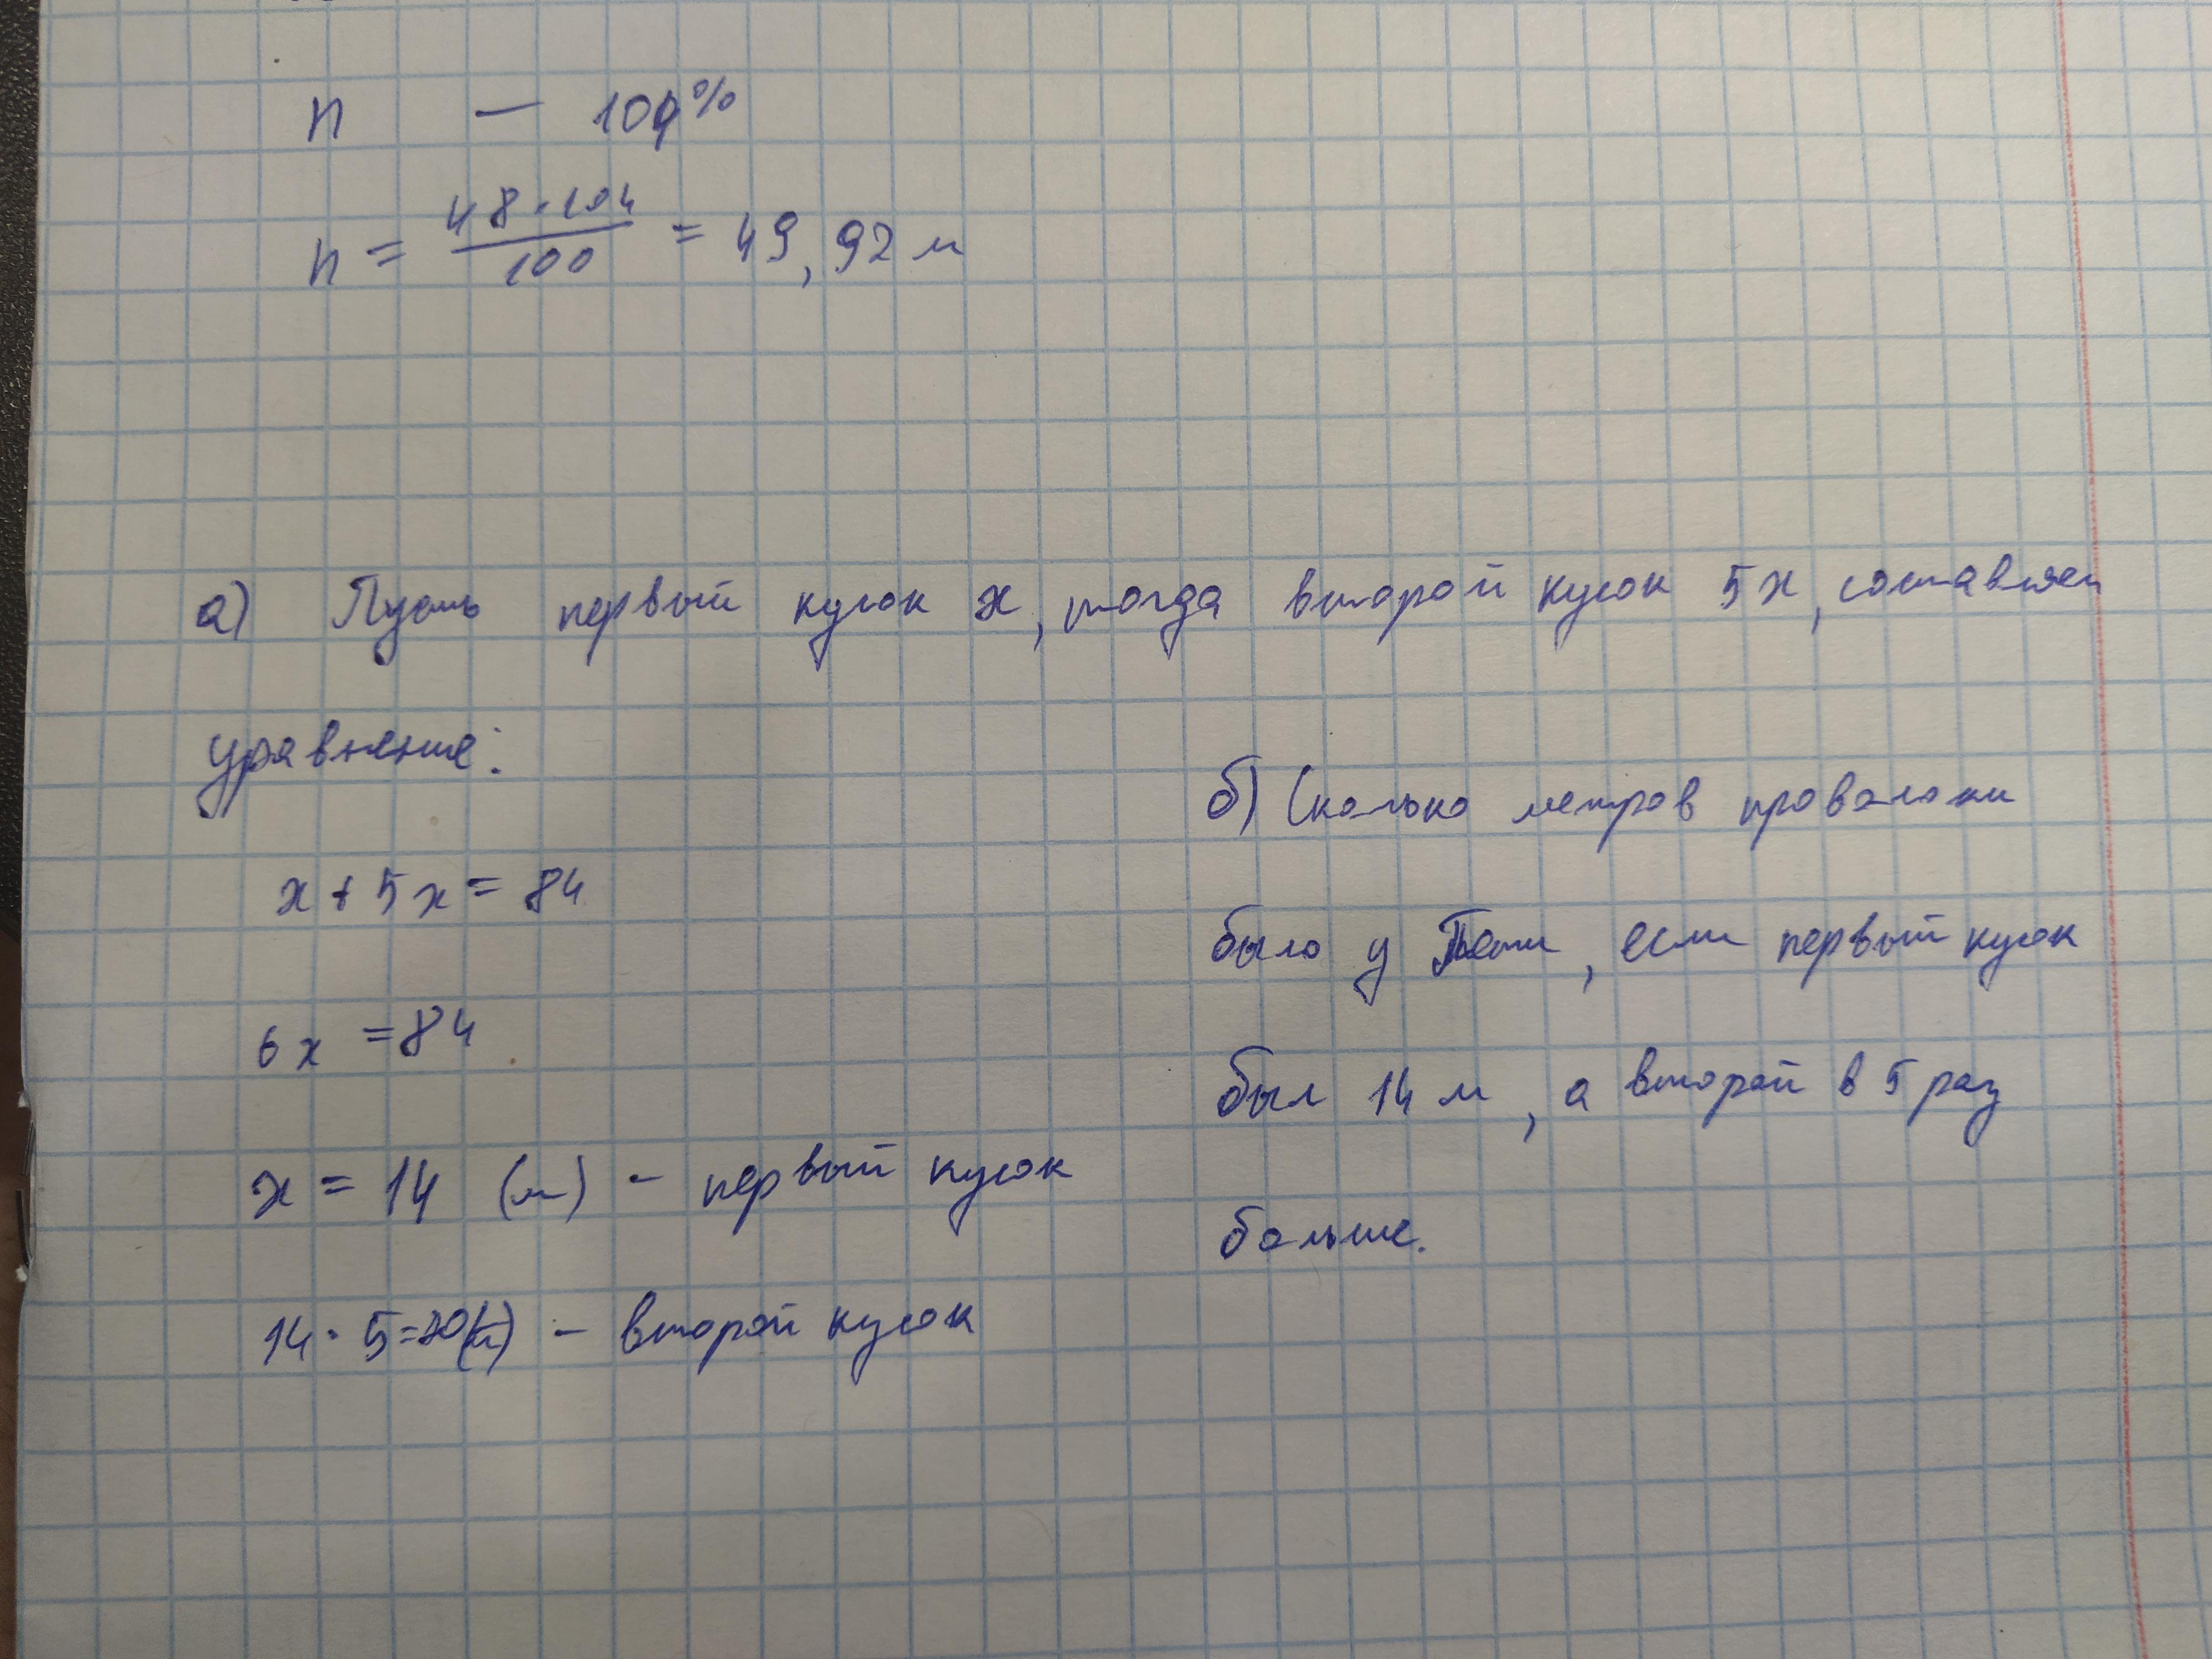 n — 104%
n = 48·104/100 = 49,92 м
а) Пусть первый кусок x, тогда второй кусок 5x, составляем
уравнение:
x + 5x = 84
6x = 84
x = 14 (м) - первый кусок
14 · 5 = 70(м) - второй кусок
б) Сколько метров проволоки
было у Пети, если первый кусок
был 14 м, а второй в 5 раз
больше.